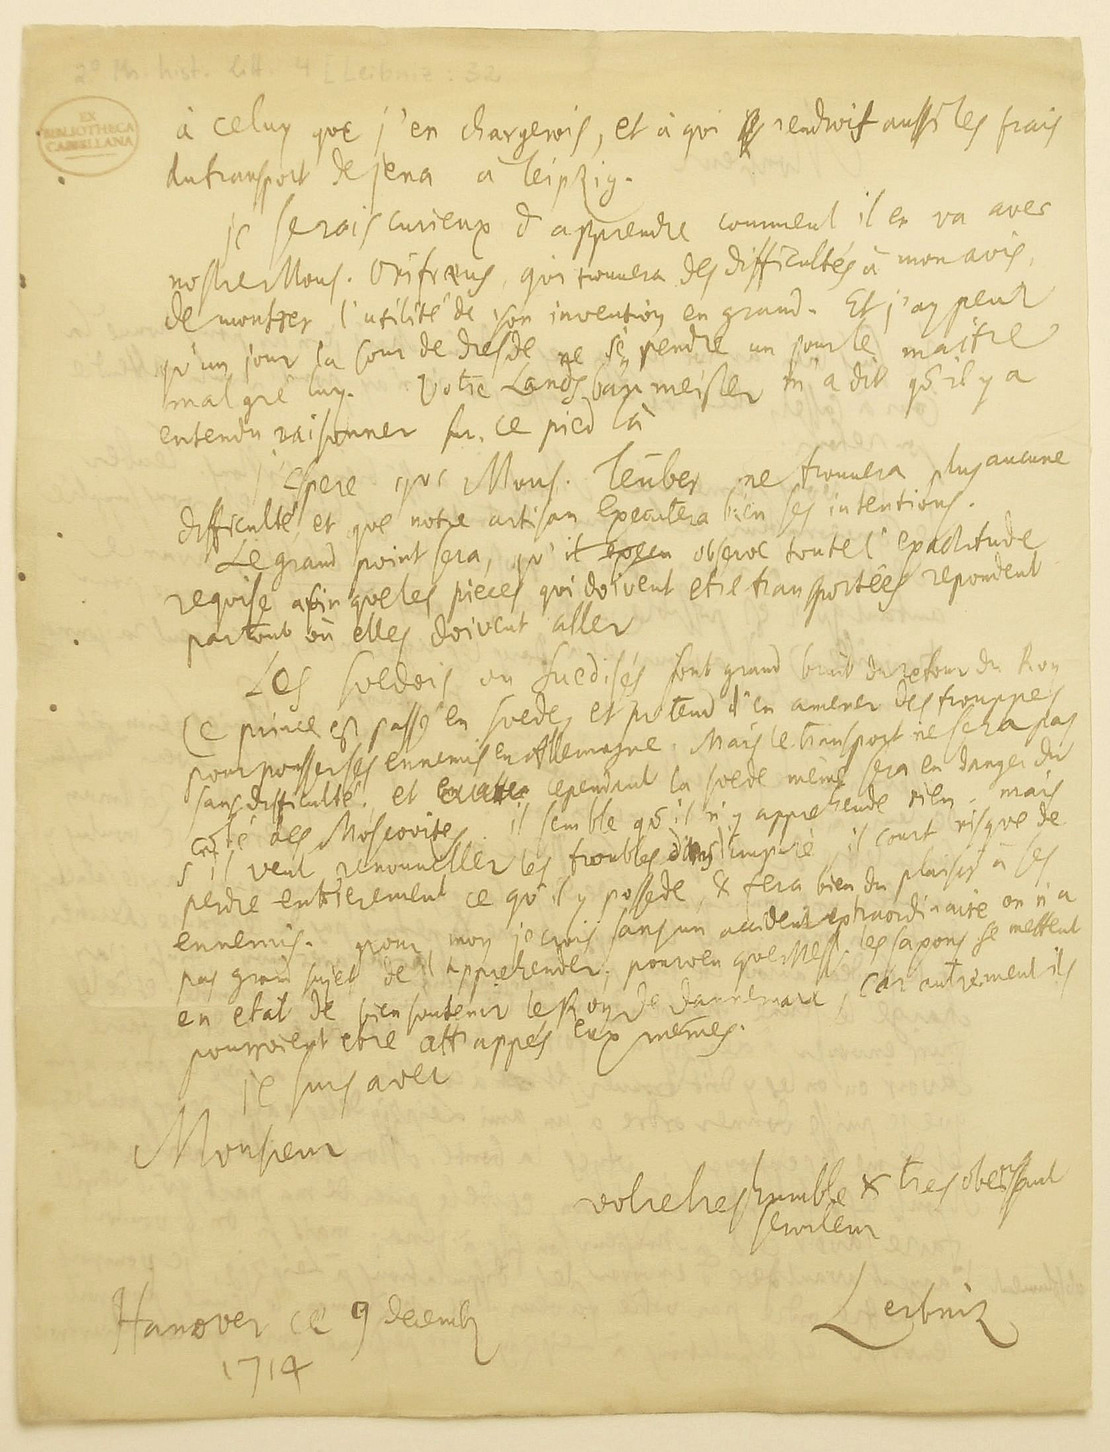 2° Ms. hist. litt. 4 [Leibniz: 32
EX
BIBLIOTHECA
CASSELLANA
à celuy que j'en chargerois, et à qui rendroit aussi les frais
du transport de jena à Leipzig.
je serois curieux d'apprendre comment il en va avec
nostre Mons. Orifreus, qui trouvera des difficultés à mon avis,
de monstrer l'utilité de son invention en grand. Et j'ay peur
qu'un jour la Cour de dresde ne s'en prendre un jour le maitre
malgré luy. Votre Landsbaumeister m'a dit qu'il y a
entendu raisonner sur ce pied là
j'espere que Mons. Teuber ne trouvera plus aucune
difficulté, et que notre artisan executera bien ses intentions.
Le grand point sera, qu'il observe toute l'exactitude
requise afin que les pieces qui doivent etre transportées repondent
partout où elles doivent aller
Les suedois ou suedisés font grand bruit du retour du Roy
Ce prince est passé en suede, et pretend d'en amener des trouppes
pour pousser ses ennemis en Allemagne. Mais le transport ne sera pas
sans difficulté. et cependant la suede même sera en danger du
costé des Moscovites. il semble qu'il n'y apprehende rien. mais
s'il veut renouveller les troubles dans l'empire, il court risque de
perdre entierement ce qu'il y possede, & fera bien du plaisir à ses
ennemis. pour moy je crois sans un accident extraordinaire on n'a
pas grand sujet de l'apprehender, pourveu que les saxons se mettent
en etat de bien soutenir le Roy de dannemarc, car autrement ils
pourroient etre attrappés eux mêmes.
je suis avec
Monsieur
votre tres humble & tres obeissant
serviteur
Leibniz
Hanover ce 9 decembr
1714